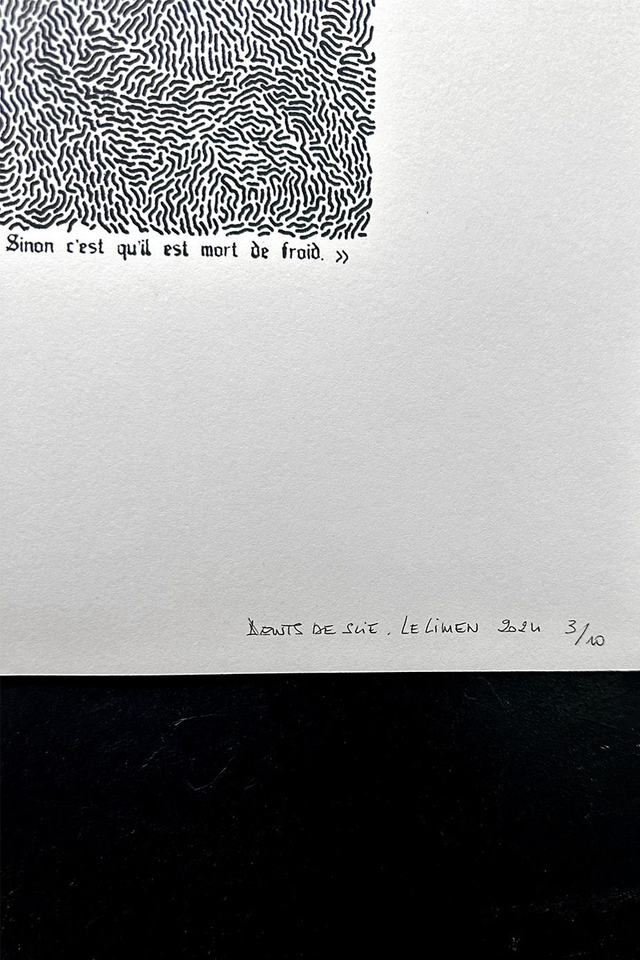 Sinon c'est qu'il est mort de froid. »
DENTS DE SCIE. LE LIMEN 2024 3/10